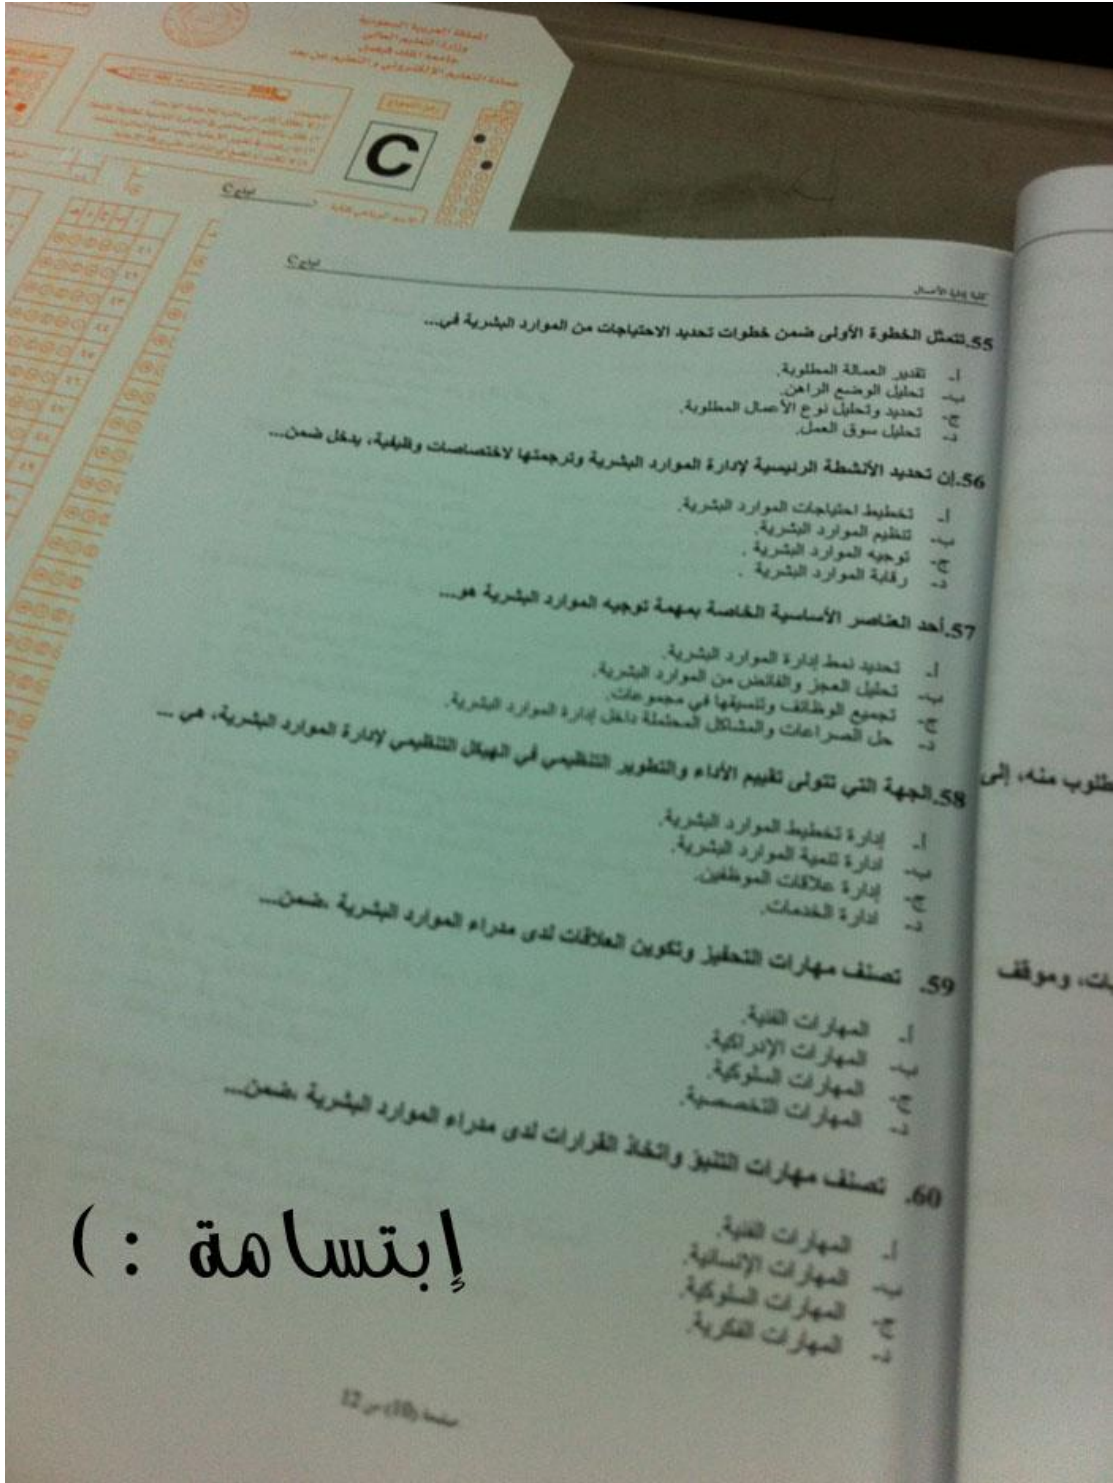 المملكة العربية السعودية
وزارة التعليم العالي
جامعة الملك فيصل
عمادة التعليم الإلكتروني والتعليم عن بعد
رمز النموذج
C
نموذج C
كلية إدارة الأعمال
نموذج C
55.تتمثل الخطوة الأولى ضمن خطوات تحديد الاحتياجات من الموارد البشرية في...
أ- تقدير العمالة المطلوبة.
ب- تحليل الوضع الراهن.
ج- تحديد وتحليل نوع الأعمال المطلوبة.
د- تحليل سوق العمل.
56.إن تحديد الأنشطة الرئيسية لإدارة الموارد البشرية وترجمتها لاختصاصات وظيفية، يدخل ضمن...
أ- تخطيط احتياجات الموارد البشرية.
ب- تنظيم الموارد البشرية.
ج- توجيه الموارد البشرية .
د- رقابة الموارد البشرية .
57.أحد العناصر الأساسية الخاصة بمهمة توجيه الموارد البشرية هو...
أ- تحديد نمط إدارة الموارد البشرية.
ب- تحليل العجز والفائض من الموارد البشرية.
ج- تجميع الوظائف وتنسيقها في مجموعات.
د- حل الصراعات والمشاكل المحتملة داخل إدارة الموارد البشرية.
58.الجهة التي تتولى تقييم الأداء والتطوير التنظيمي في الهيكل التنظيمي لإدارة الموارد البشرية، هي ...
أ- إدارة تخطيط الموارد البشرية.
ب- ادارة تنمية الموارد البشرية.
ج- إدارة علاقات الموظفين.
د- ادارة الخدمات.
59. تصنف مهارات التحفيز وتكوين العلاقات لدى مدراء الموارد البشرية ،ضمن...
أ- المهارات الفنية.
ب- المهارات الإدراكية.
ج- المهارات السلوكية.
د- المهارات التخصصية.
60. تصنف مهارات التنبؤ واتخاذ القرارات لدى مدراء الموارد البشرية ،ضمن...
أ- المهارات الفنية.
ب- المهارات الإنسانية.
ج- المهارات السلوكية.
د- المهارات الفكرية.
صفحة (10) من 12
طلوب منه، إلى
بات، وموقف
إبتسامة : )